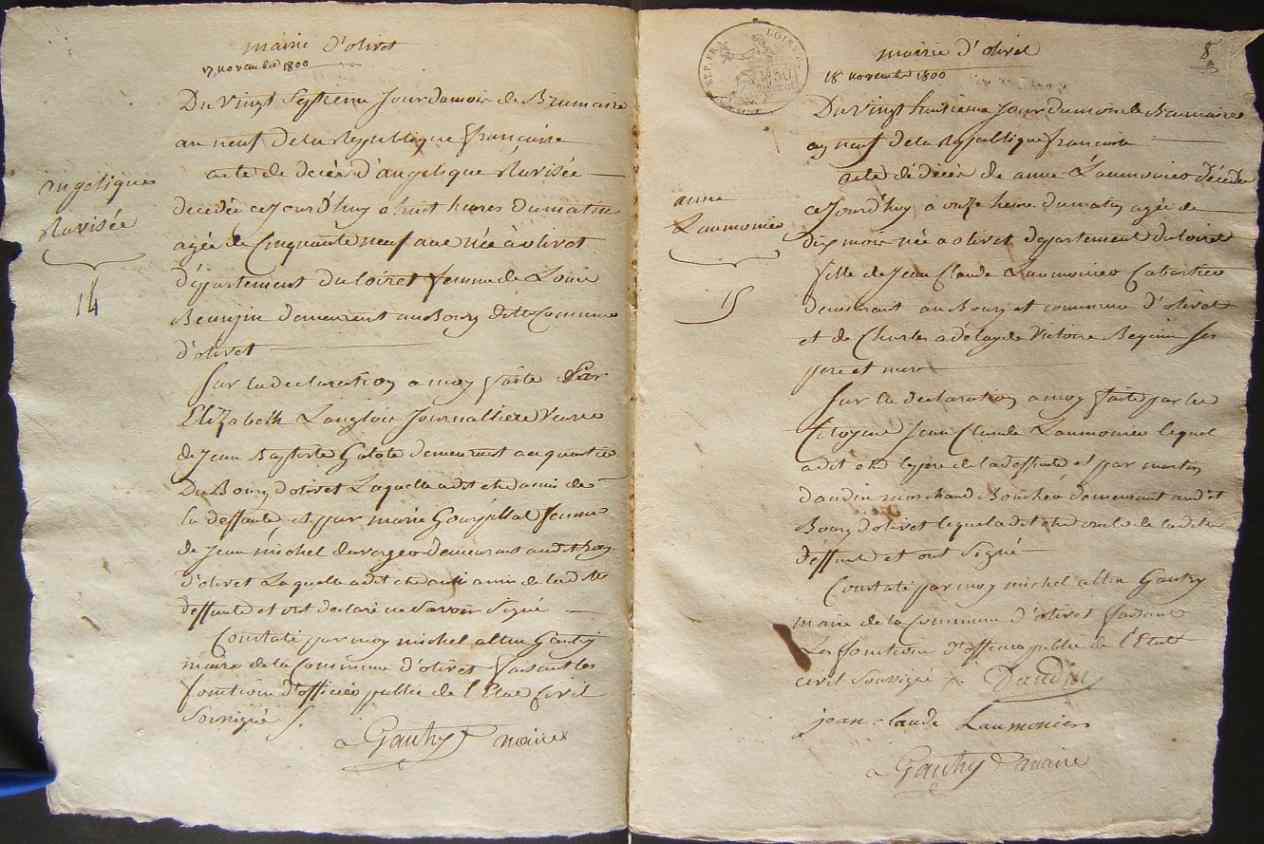 mairie d'olivet
17 novembre 1800
Du Vingt Septieme Jour du mois de Brumaire
an neuf de la Republique françoise
acte de decès d'angelique Ravisée
decedée ce Jourd'huy a huit heures du matin
agée de Cinquante neuf ans née à olivet
département du loiret femme de Louis
demeurant au Bourg dite Commune
d'olivet
Sur la declaration a moy faite Par
Elizabeth Langlois Journalliere Veuve
de Jean Baptiste Galote demeurant au quartier
Du Bourg d'olivet Laquelle a dit etre amie de
la deffunte, et par marie femme
de Jean michel demeurant audit bourg
d'olivet Laquelle a dit etre aussi amie de la dte
deffunte et ont declaré ne Savoir Signé
Constaté par moy michel Gautry
maire de la Commune d'olivet faisant les
fonctions d'officier public de l'Etat Civil
Soussigné
Gautry maire
angelique
Ravisée
14
mairie d'olivet
8
18 novembre 1800
Du Vingt huitieme Jour du mois de Brumaire
an neuf de la Republique francoise
acte de décès de anne Laumonier décédée
ce Jourd'huy a onze heure du matin agée de
dix mois née a olivet departement du loiret
fille de Jean Claude Laumonier Cabartier
demeurant au Bourg et commune d'olivet
et de Charles adélayde Victoire ses
pere et mere
Sur la déclaration a moy faite par le
Citoyens Jean Claude Laumonier lequel
a dit etre le pere de la deffunte et par martin
daudin marchand Boucher demeurant audit
Bourg d'olivet lequel a dit etre oncle de la dite
deffunte et ont Signé
Constaté par moy michel Gautry
maire de la Commune d'olivet faisant
Les fonctions d'officier public de l'Etat
civil Soussigné Daudin
jean claude Laumonier
Gautry maire
anne
Laumonier
15
REP. FRA. LOIRET